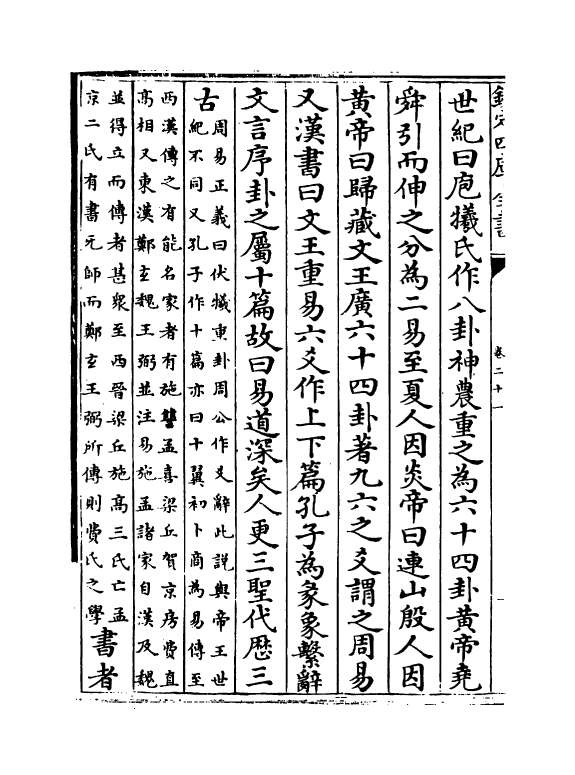 欽定四庫全書
卷二十一
世紀曰庖犧氏作八卦神農重之為六十四卦黄帝堯
舜引而伸之分為二易至夏人因炎帝曰連山殷人因
黄帝曰歸藏文王廣六十四卦著九六之爻謂之周易
又漢書曰文王重易六爻作上下篇孔子為彖象繫辭
文言序卦之屬十篇故曰易道深矣人更三聖代歴三
古
周易正義曰伏犧重卦周公作爻辭此說與帝王世
紀不同又孔子作十篇亦曰十翼初卜商為易傳至
西漢傳之有能名家者有施讐孟喜梁丘賀京房費直
高相又東漢鄭玄魏王弼並注易施孟諸家自漢及魏
並得立而傳者甚衆至西晉梁丘施高三氏亡孟
京二氏有書无師而鄭玄王弼所傳則費氏之學
書者